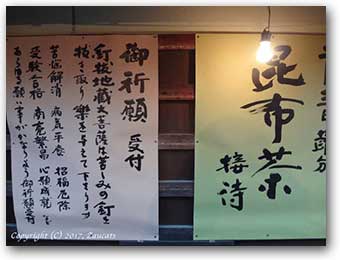 昆布茶
接待
御祈願 受付
釘抜地蔵大菩薩は苦しみの釘を
抜き取り楽を与えて下さります
苦悩解消 病気平癒 招福厄除
受験合格 商売繁昌 心願成就
あらゆる願い事がかなうよう御祈願受付
Copyright (C) 2017, Zaucats